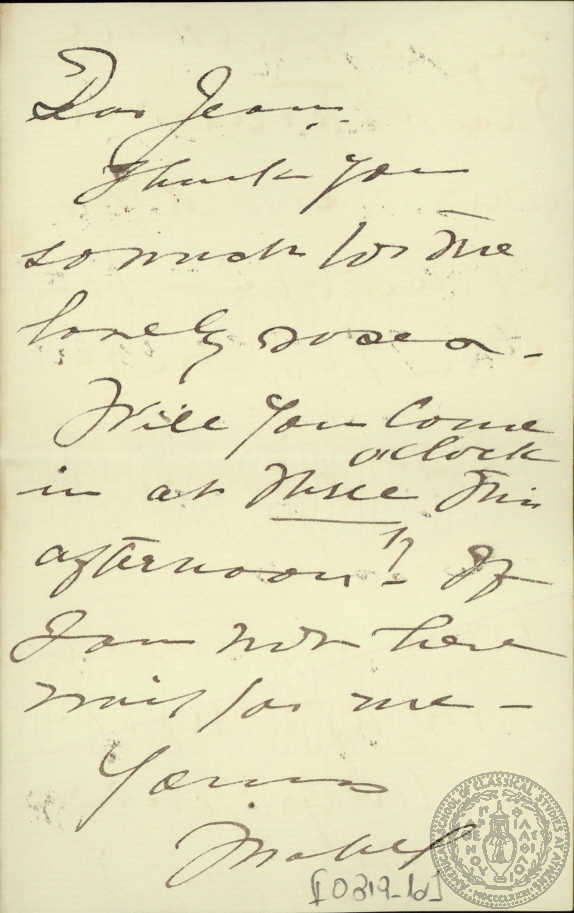 Dear Jean,
Thank you
so much for the
lovely roses -
Will you come
o'clock
in at three this
afternoon? If
I am not here
wait for me -
Yours
Mabel
[0819-1d]
AMERICAN SCHOOL OF CLASSICAL STUDIES AT ATHENS
ΠΑΡΘΕΝΟΥ ΦΙΛΑΣ ΦΙΛΟΙ